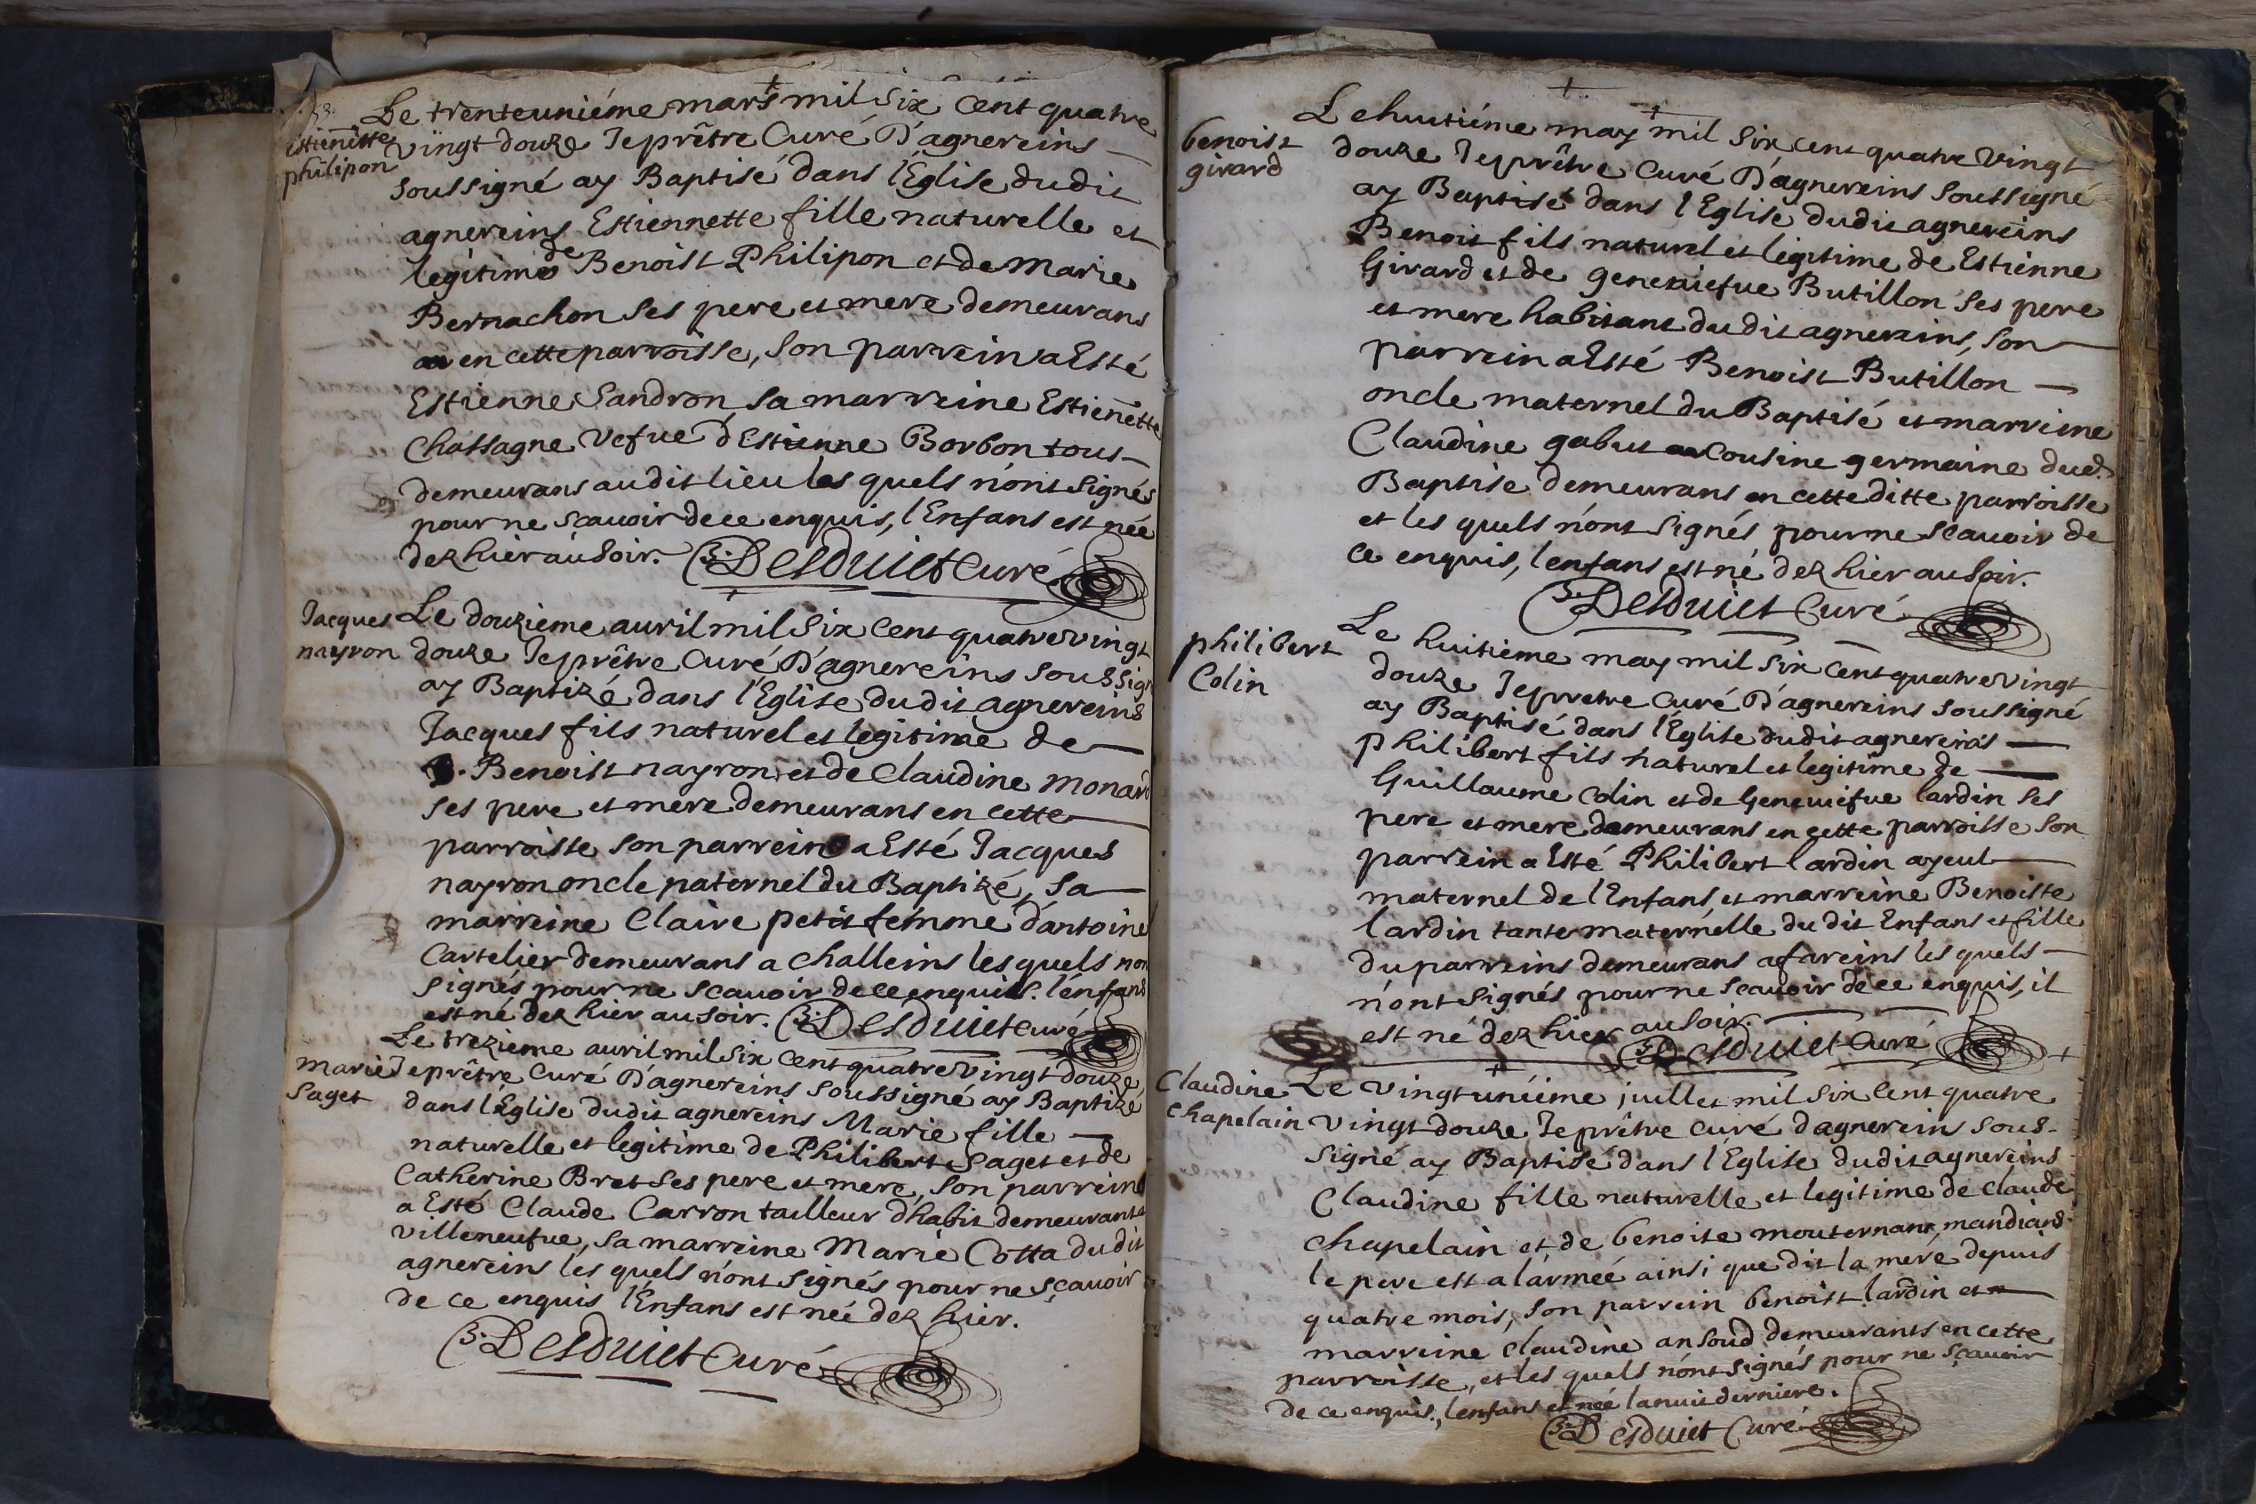 Estiennette
philipon
Le trenteuniéme mars mil six cent quatre
vingt douze Je prêtre Curé D'agnereins
soussigné ay Baptisé dans l'Eglise dudit
agnereins Estiennette fille naturelle et
legitime de Benoist Philipon et de Marie
Bernachon ses pere et mere demeurans
en cette parroisse, son parrein a Esté
Estienne Sandron, sa marreine Estiennette
Chassagne vefue d'Estienne Borbon tous
demeurans audit lieu les quels n'ont signés
pour ne scauoir de ce enquis, l'Enfans est née
dez hier au soir. Desduiet Curé
Jacques
nayron
Le douzieme auril mil six cent quatre vingt
douze Je prêtre Curé D'agnereins soussigné
ay Baptizé dans l'Eglise dudit agnereins
Jacques fils naturel et legitime de
Benoist nayron et de Claudine monard
ses pere et mere demeurans en cette
parroisse son parrein a Esté Jacques
nayron oncle paternel du Baptizé, sa
marreine Claire petit femme d'antoine
Cartelier demeurans a challeins les quels non
signés pour ne scauoir de ce enquis. l'enfans
est né dez hier au soir. Desduiet curé
Marie
Saget
Le trezieme auril mil six cent quatre vingt douze
Je prêtre Curé D'agnereins soussigné ay Baptizé
dans l'Eglise dudit agnereins Marie fille
naturelle et legitime de Philibert Saget et de
Catherine Bret ses pere et mere, son parrein
a Esté Claude Carron tailleur d'habit demeurant a
villeneufue, sa marreine Marie Cotta dudit
agnereins les quels n'ont signés pour ne sçauoir
de ce enquis l'Enfans est née dez hier.
Desduiet Curé
benoist
girard
Le huitiéme may mil six cent quatre vingt
douze Je prêtre Curé D'agnereins soussigné
ay Baptisé dans l'Eglise dudit agnereins
Benoit fils naturel et legitime de Estienne
Girard et de geneuiefue Butillon ses pere
et mere habitant dudit agnereins, son
parrein a Esté Benoist Butillon
oncle maternel du Baptisé et marreine
Claudine gabut cousine germaine dud.
Baptise demeurans en cette ditte parroisse
et les quels n'ont signés pour ne scauoir de
ce enquis, l'enfans est né dez hier au soir.
Desduiet Curé
philibert
Colin
Le huitieme may mil six cent quatre vingt
douze Je prretre Curé D'agnereins soussigné
ay Baptisé dans l'Eglise dudit agnereins
philibert fils naturel et legitime de
Guillaume Colin et de Geneuiefue lardin ses
pere et mere demeurans en cette parroisse son
parrein a Esté Philibert lardin ayeul
maternel de l'Enfans et marreine Benoiste
lardin tante maternelle du dit Enfans et fille
du parreins demeurans a fareins les quels
n'ont signés pour ne scauoir de ce enquis, il
est né dez hier au soir.
Desduiet Curé
Claudine
Chapelain
Le vingt uniéme juillet mil six cent quatre
vingt douze Je prêtre curé d'agnerein sous-
signé ay Baptisé dans l'Eglise dudit agnereins
Claudine fille naturelle et legitime de claude
chapelain et de benoite mouternant, mandians
le pere est a l'armeé ainsi que dit la mere depuis
quatre mois, son parrein benoist lardin et
marreine claudine ansoud demeurants en cette
parroisse, et les quels n'ont signés pour ne scauoir
de ce enquis, l'enfans est née la nuit derniere.
Desduiet Curé